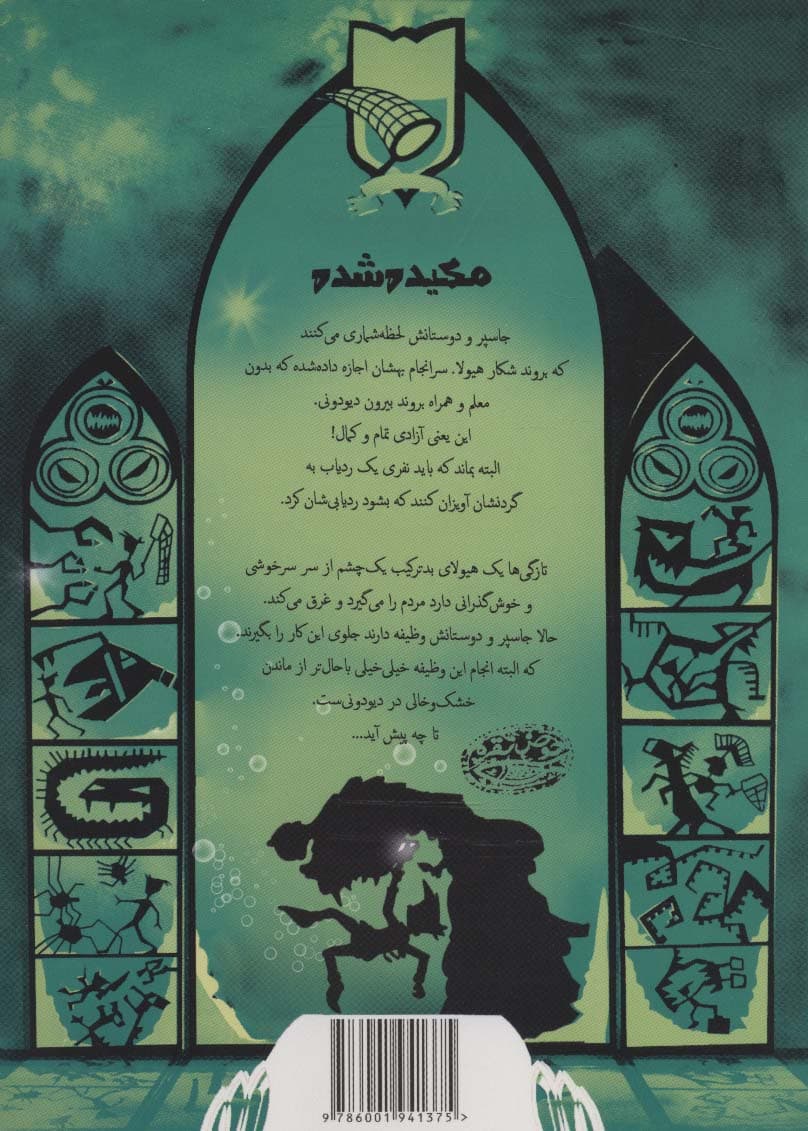 مکیده‌شده
جاسپر و دوستانش لحظه‌شماری می‌کنند
که بروند شکار هیولا. سرانجام بهشان اجازه داده‌شده که بدون
معلم و همراه بروند بیرون دیودونی.
این یعنی آزادی تمام و کمال!
البته بماند که باید نفری یک ردیاب به
گردنشان آویزان کنند که بشود ردیابی‌شان کرد.
تازگی‌ها یک هیولای بدترکیب یک‌چشم از سر سرخوشی
و خوش‌گذرانی دارد مردم را می‌گیرد و غرق می‌کند.
حالا جاسپر و دوستانش وظیفه دارند جلوی این کار را بگیرند.
که البته انجام این وظیفه خیلی‌خیلی باحال‌تر از ماندن
خشک‌وخالی در دیودونی‌ست.
تا چه پیش آید...
9 786001 941375 >